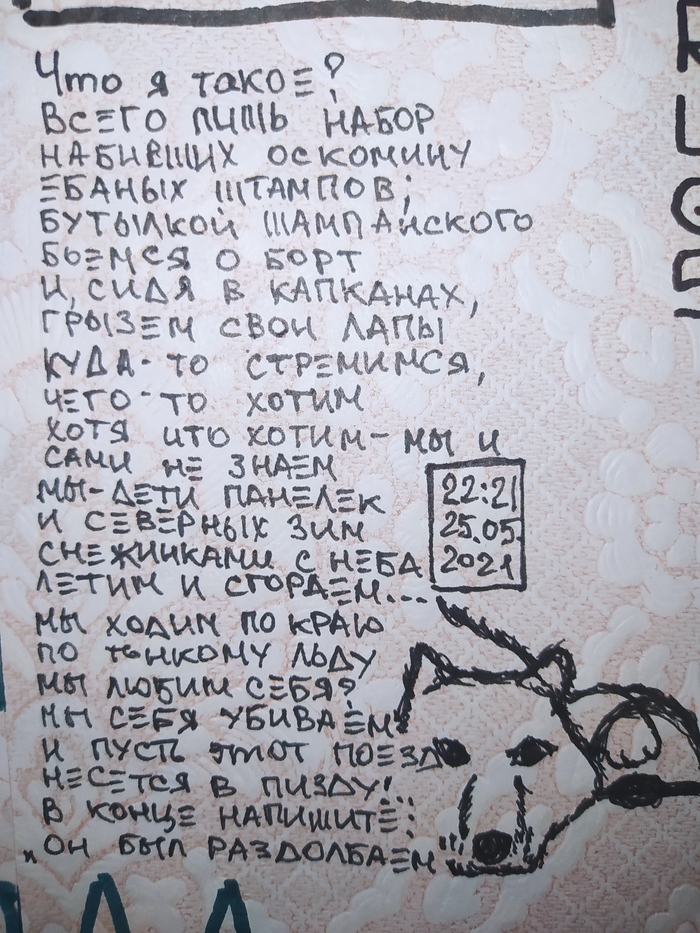 Что я такое?
Всего лишь набор
набивших оскомину
ебаных штампов;
бутылкой шампанского
бьемся о борт
и, сидя в капканах,
грызем свои лапы
куда-то стремимся,
чего-то хотим
хотя что хотим- мы и
сами не знаем
мы-дети панелек
и северных зим
снежинками с неба
летим и сгораем...
мы ходим по краю
по тонкому льду
мы любим себя?
мы себя убиваем
и пусть этот поезд
несется в пизду!
в конце напишите:
"он был раздолбаем
22:21
25.05.
2021